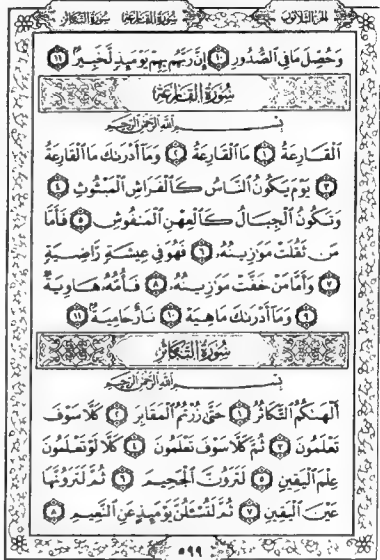 الجزء الثلاثون سورة القارعة سورة التكاثر
وَحُصِّلَ مَا فِي ٱلصُّدُورِ ١٠ إِنَّ رَبَّهُم بِهِمْ يَوْمَئِذٍ لَّخَبِيرٌ ١١
سُورَةُ القَارِعَةِ
بِسْمِ ٱللَّهِ ٱلرَّحْمَٰنِ ٱلرَّحِيمِ
ٱلْقَارِعَةُ ١ مَا ٱلْقَارِعَةُ ٢ وَمَآ أَدْرَىٰكَ مَا ٱلْقَارِعَةُ
٣ يَوْمَ يَكُونُ ٱلنَّاسُ كَٱلْفَرَاشِ ٱلْمَبْثُوثِ ٤
وَتَكُونُ ٱلْجِبَالُ كَٱلْعِهْنِ ٱلْمَنفُوشِ ٥ فَأَمَّا
مَن ثَقُلَتْ مَوَٰزِينُهُۥ ٦ فَهُوَ فِى عِيشَةٍ رَّاضِيَةٍ
٧ وَأَمَّا مَنْ خَفَّتْ مَوَٰزِينُهُۥ ٨ فَأُمُّهُۥ هَاوِيَةٌ
٩ وَمَآ أَدْرَىٰكَ مَا هِيَهْ ١٠ نَارٌ حَامِيَةٌۢ ١١
سُورَةُ التَّكَاثُرِ
بِسْمِ ٱللَّهِ ٱلرَّحْمَٰنِ ٱلرَّحِيمِ
أَلْهَىٰكُمُ ٱلتَّكَاثُرُ ١ حَتَّىٰ زُرْتُمُ ٱلْمَقَابِرَ ٢ كَلَّا سَوْفَ
تَعْلَمُونَ ٣ ثُمَّ كَلَّا سَوْفَ تَعْلَمُونَ ٤ كَلَّا لَوْ تَعْلَمُونَ
عِلْمَ ٱلْيَقِينِ ٥ لَتَرَوُنَّ ٱلْجَحِيمَ ٦ ثُمَّ لَتَرَوُنَّهَا
عَيْنَ ٱلْيَقِينِ ٧ ثُمَّ لَتُسْـَٔلُنَّ يَوْمَئِذٍ عَنِ ٱلنَّعِيمِ ٨
٥٩٩